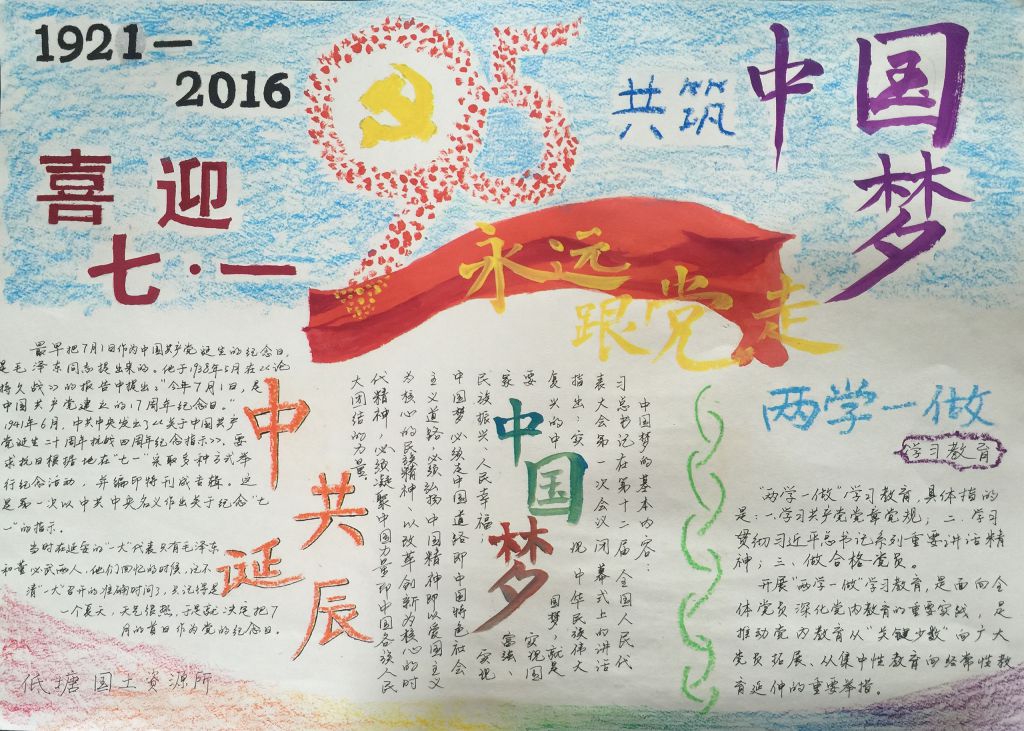 1921—
2016
95
喜迎
七·一
共筑
中国
梦
永远
跟党走
最早把7月1日作为中国共产党诞生的纪念日,
是毛泽东同志提出来的。他于1938年5月在《论
持久战》的报告中提出:"今年7月1日,是
中国共产党建立的17周年纪念日。"
1941年6月,中共中央发出了《关于中国共产
党诞生二十周年抗战四周年纪念指示》,要
求抗日根据地在"七一"采取多种方式举
行纪念活动,并编印特刊或专辑。这
是第一次以中共中央名义作出关于纪念"七
一"的指示。
当时在延安的"一大"代表只有毛泽东
和董必武两人,他们回忆的时候,记不
清"一大"召开的准确时间了,只记得是
一个夏天,天气很热,于是就决定把7
月的首日作为党的纪念日。
低塘国土资源所
中
共
诞
辰
中国梦的基本内容:
习总书记在第十二届全国人民代
表大会第一次会议闭幕式上的讲话
指出:实现中华民族伟大
复兴的中国梦,就是
要实现国
家富强、
民族振兴、人民幸福;实现
中国梦必须走中国道路即中国特色社会
主义道路,必须弘扬中国精神即以爱国主义
为核心的民族精神、以改革创新为核心的时
代精神,必须凝聚中国力量即中国各族人民
大团结的力量。
中
国
梦
两学一做
学习教育
"两学一做"学习教育,具体指的
是:一.学习共产党党章党规;二.学习
贯彻习近平总书记系列重要讲话精
神;三、做合格党员。
开展"两学一做"学习教育,是面向全
体党员深化党内教育的重要实践,是
推动党内教育从"关键少数"向广大
党员拓展、从集中性教育向经常性教
育延伸的重要举措。